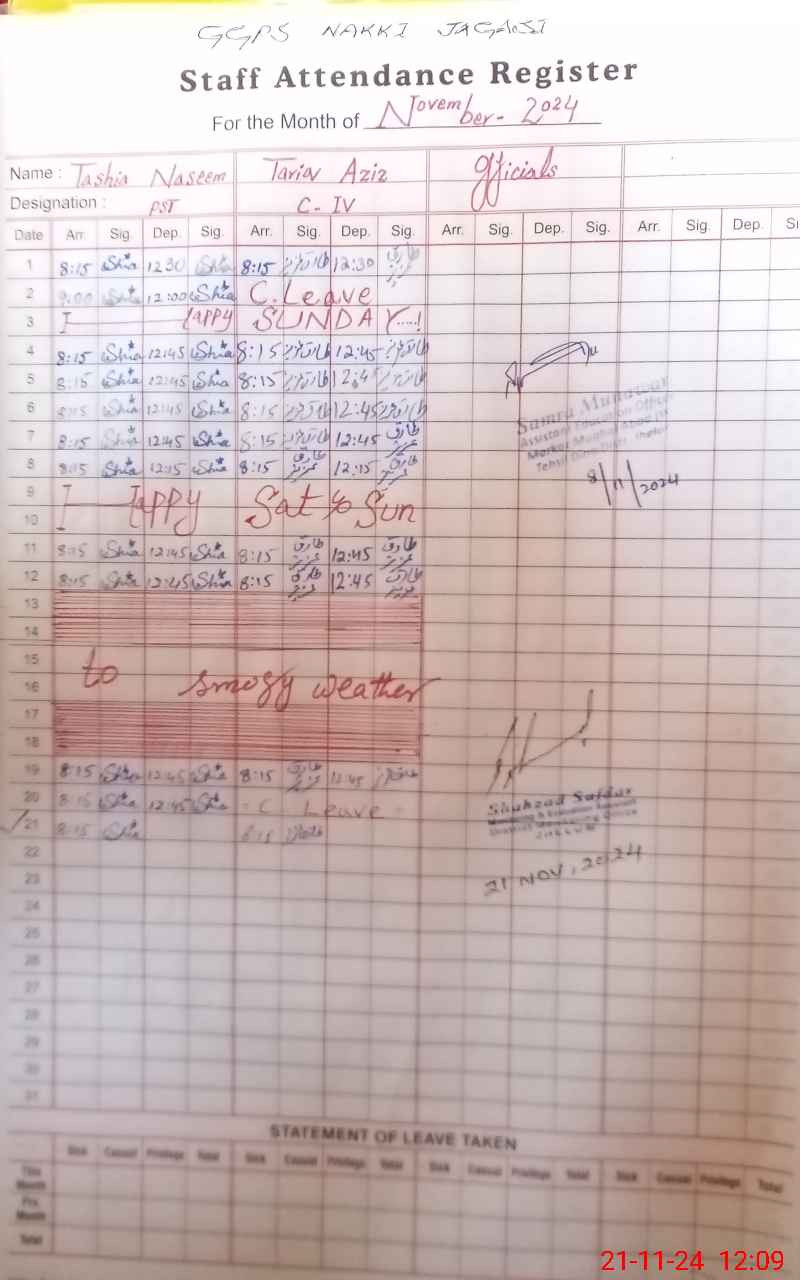 GGPS NAKKI JAGANSI
Staff Attendance Register
For the Month of November-2024
Name : Tashia Naseem Tariq Aziz Officials
Designation : PST C-IV
Date Arr. Sig. Dep. Sig. Arr. Sig. Dep. Sig. Arr. Sig. Dep. Sig. Arr. Sig. Dep.
1 8:15 Shia 12:30 Shia 8:15 طارق عزیز 12:30 طارق عزیز
2 9:00 Shia 12:00 Shia C.Leave
3 Happy SUNDAY.....!
4 8:15 Shia 12:45 Shia 8:15 طارق عزیز 12:45 طارق عزیز
5 8:15 Shia 12:45 Shia 8:15 طارق عزیز 12:45 طارق عزیز
6 8:15 Shia 12:45 Shia 8:15 طارق عزیز 12:45 طارق عزیز
7 8:15 Shia 12:45 Shia 8:15 طارق عزیز 12:45 طارق عزیز
8 8:15 Shia 12:15 Shia 8:15 طارق عزیز 12:15 طارق عزیز
Samra Munawar
Assistant Education Officer
8/11/2024
9
Happy Sat & Sun
10
11 8:15 Shia 12:45 Shia 8:15 طارق عزیز 12:45 طارق عزیز
12 8:15 Shia 12:45 Shia 8:15 طارق عزیز 12:45 طارق عزیز
13
14
15
16 to smogy weather
17
18
19 8:15 Shia 12:45 Shia 8:15 طارق عزیز 12:45 طارق عزیز
20 8:15 Shia 12:45 Shia C. Leave
21 8:15 Shia 8:15
Shahzad Safdar
Monitoring & Evaluation Assistant
District Monitoring Office
Jhelum
21 NOV, 2024
22
23
24
25
26
27
28
29
30
31
STATEMENT OF LEAVE TAKEN
Sick Casual Privilege Total Sick Casual Privilege Total Sick Casual Privilege Total Sick Casual Privilege Total
This Month
Pre. Month
Total
21-11-24 12:09